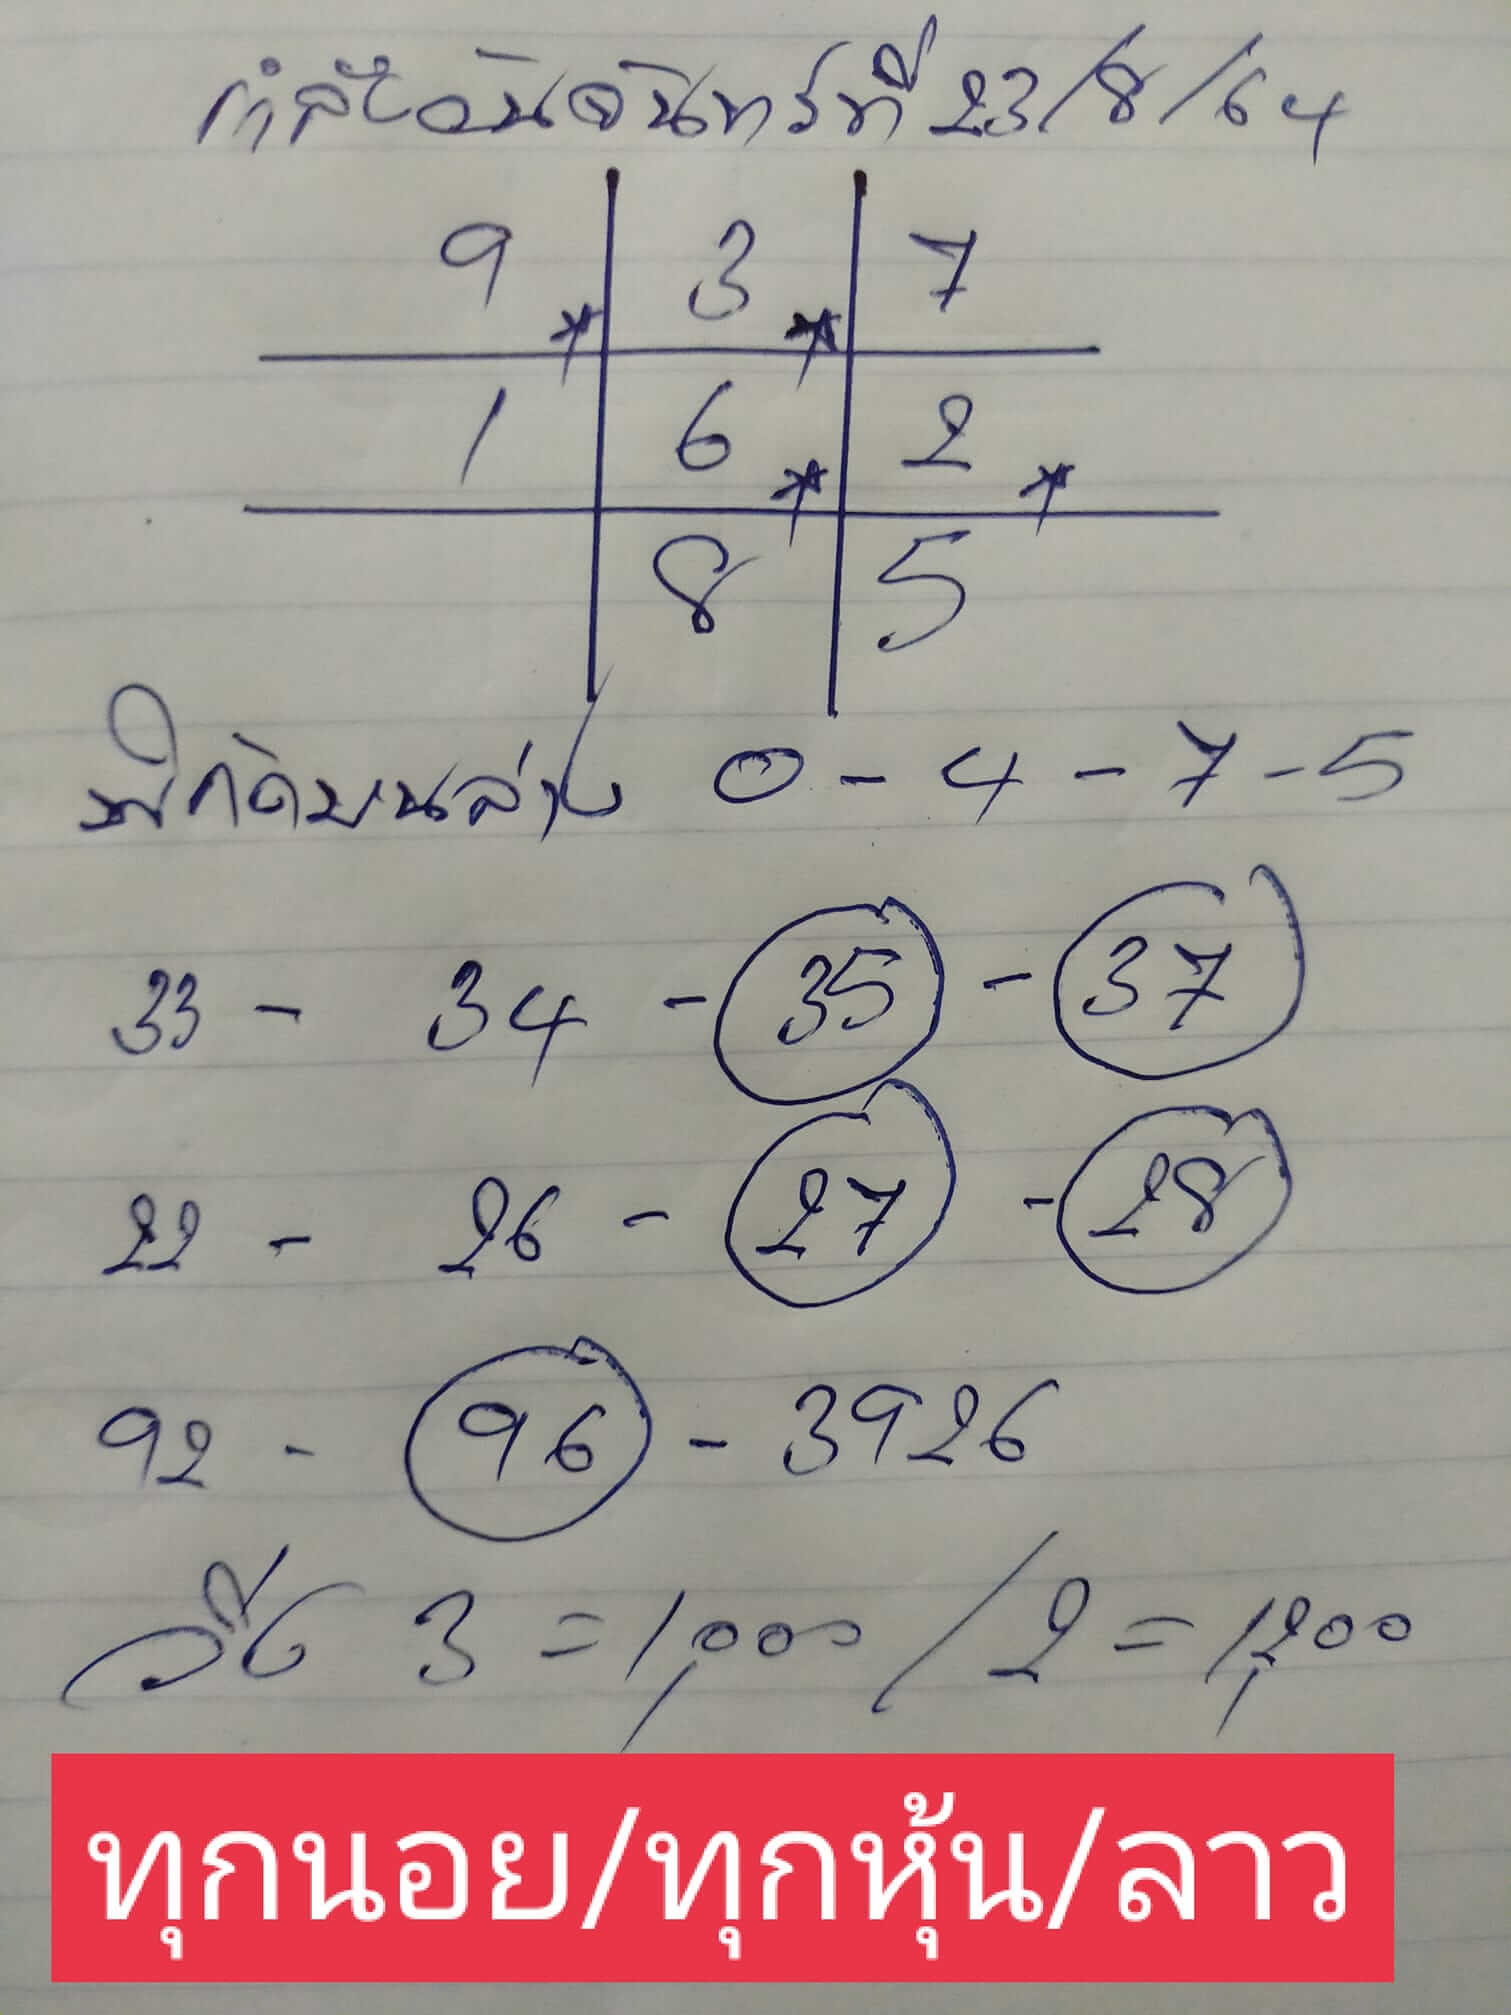 กำลังวันจันทร์ที่ 23/8/64
9 3 7
1 6 2
8 5
พิกัดบนล่าง 0 - 4 - 7 - 5
33 - 34 - 35 - 37
22 - 26 - 27 - 28
92 - 96 - 3926
วิ่ง 3 = 1,000 / 2 = 1,200
ทุกนอย/ทุกหุ้น/ลาว